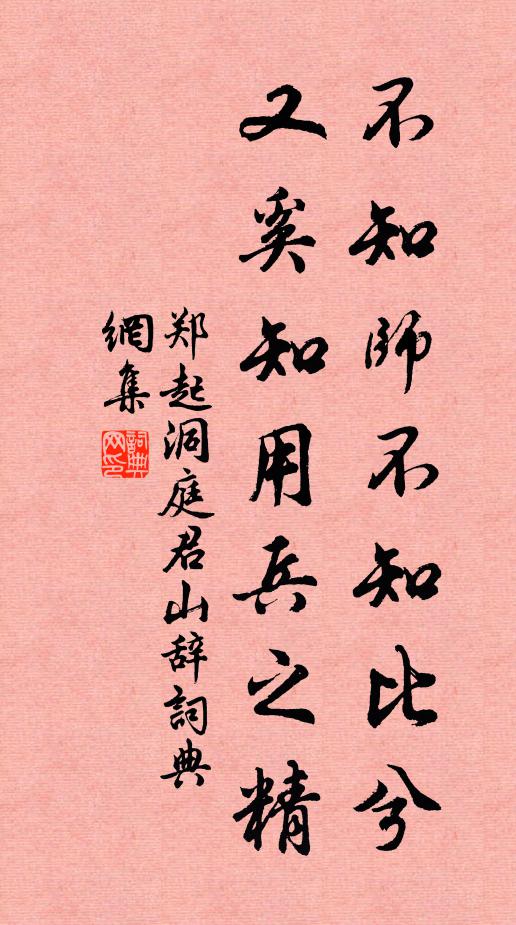 不知師不知比兮
又奚知用兵之精
郑起洞庭君山辞詞典
網集
詞典
网印